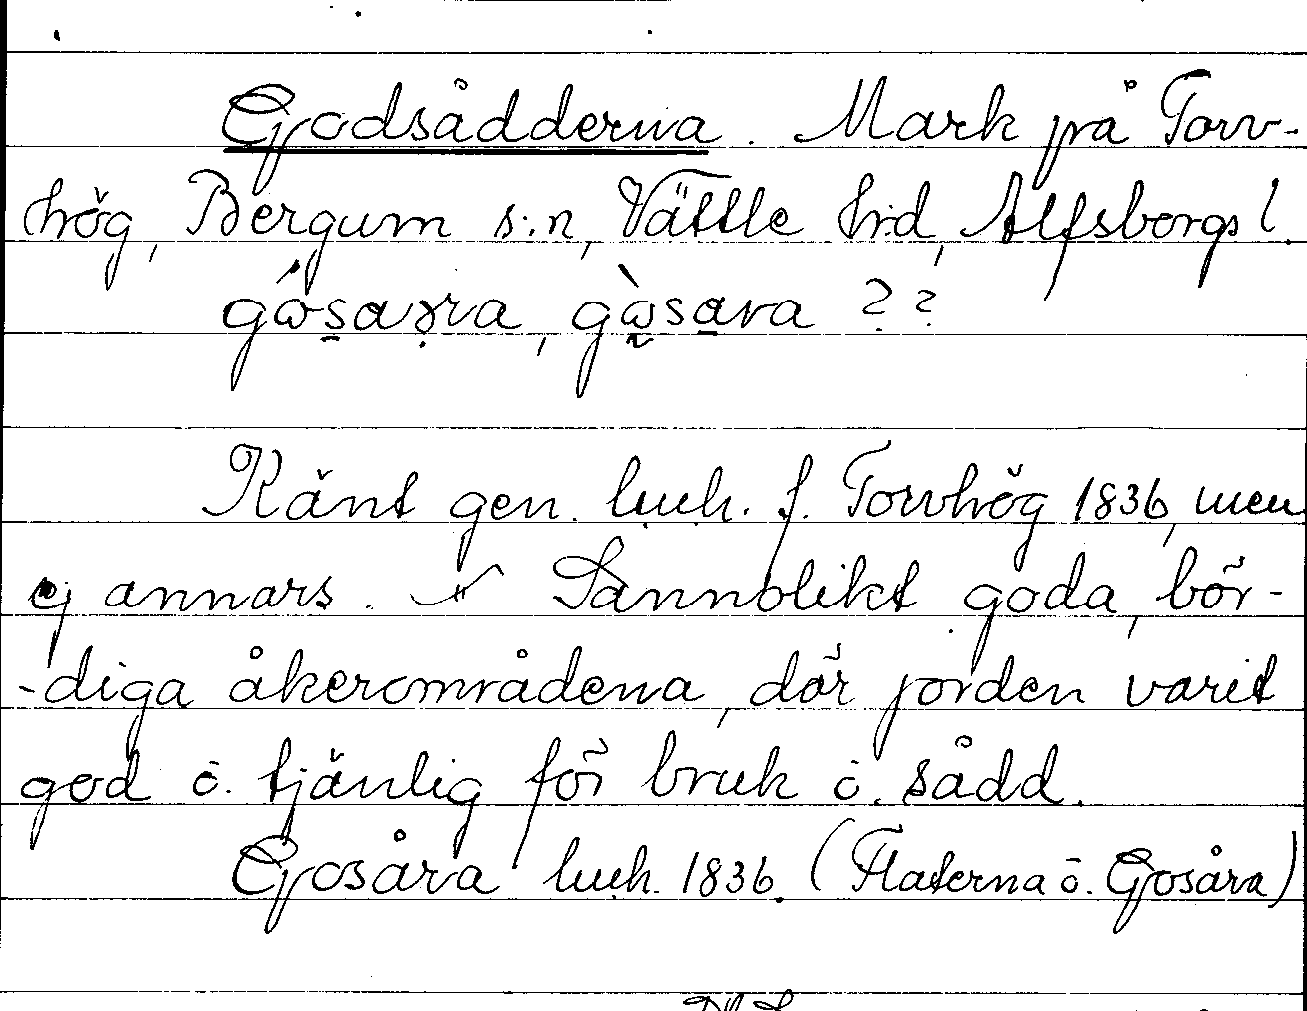 Godsådderna. Mark på Torv-
hög, Bergum s:n, Vättle hrd, Alfsborgs l.
gω̂s̱aɽra, gὼsa̱ra ??
Känt gen. luh. f. Torvhög 1836, men
ej annars. Sannolikt goda, bör-
-diga åkerområdena, där jorden varit
god o. tjänlig för bruk o. sådd.
Gosåra luh. 1836. (Flaterna o. Gosåra)